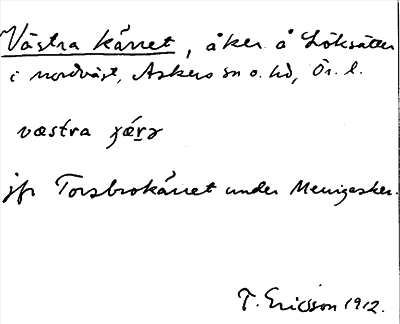 Västra kärret, åker å Löksätter
i nordväst, Askers sn o. hd, Ör. l.
væstra
jfr Torsbrokärret under Menigasker.
T. Ericsson 1912.